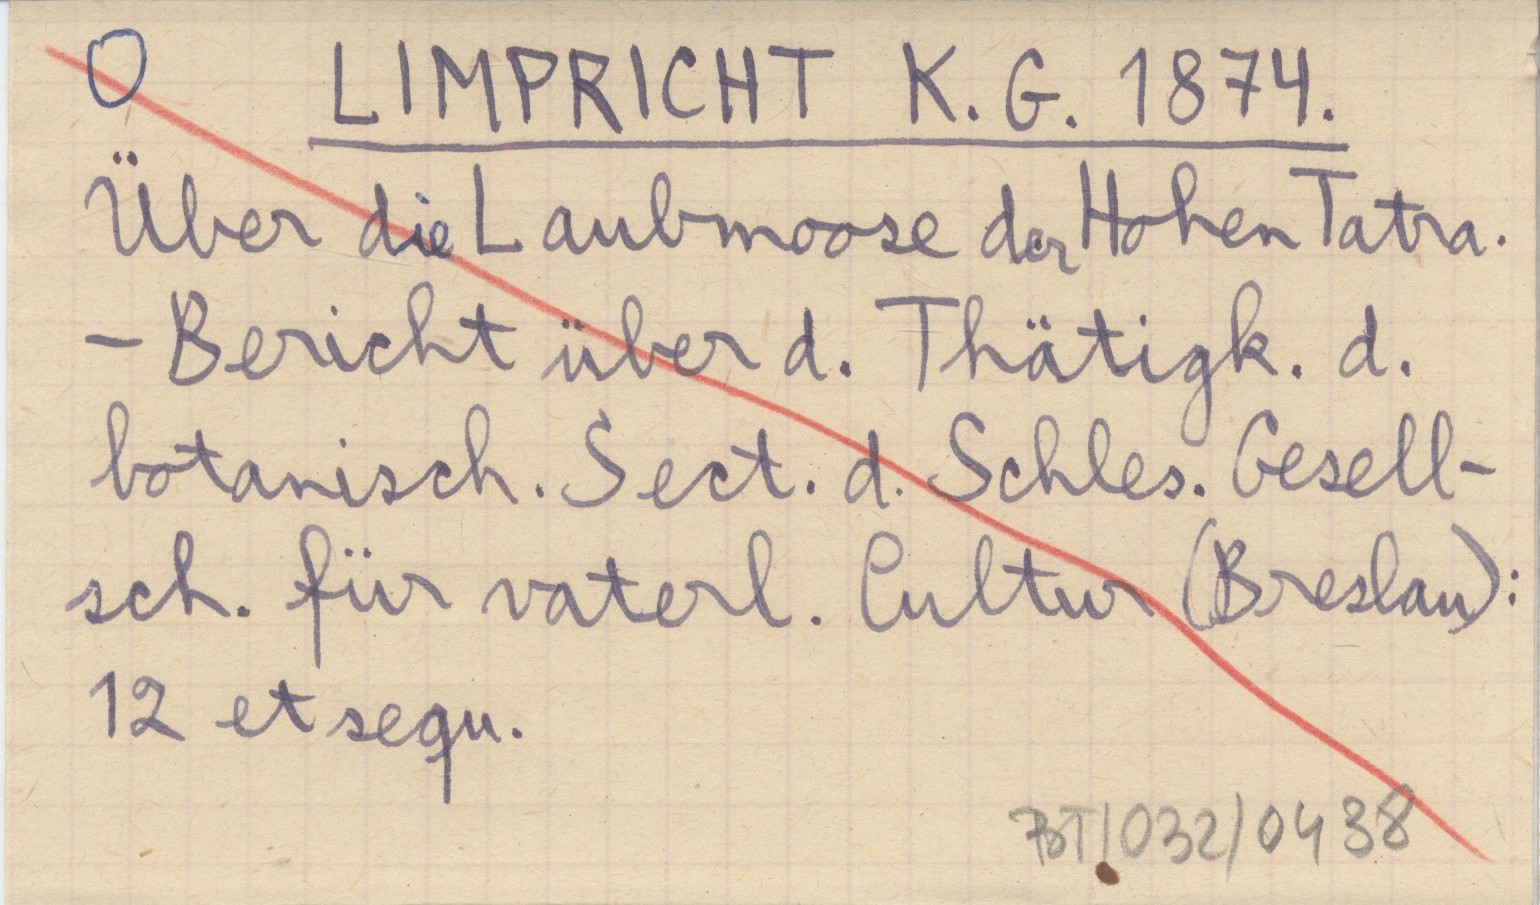 O LIMPRICHT K. G. 1874.
Über die Laubmoose der Hohen Tatra.
- Bericht über d. Thätigk. d.
botanisch. Sect. d. Schles. Gesell-
sch. für vaterl. Cultur (Breslau):
12 et sequ.
BT/032/0438